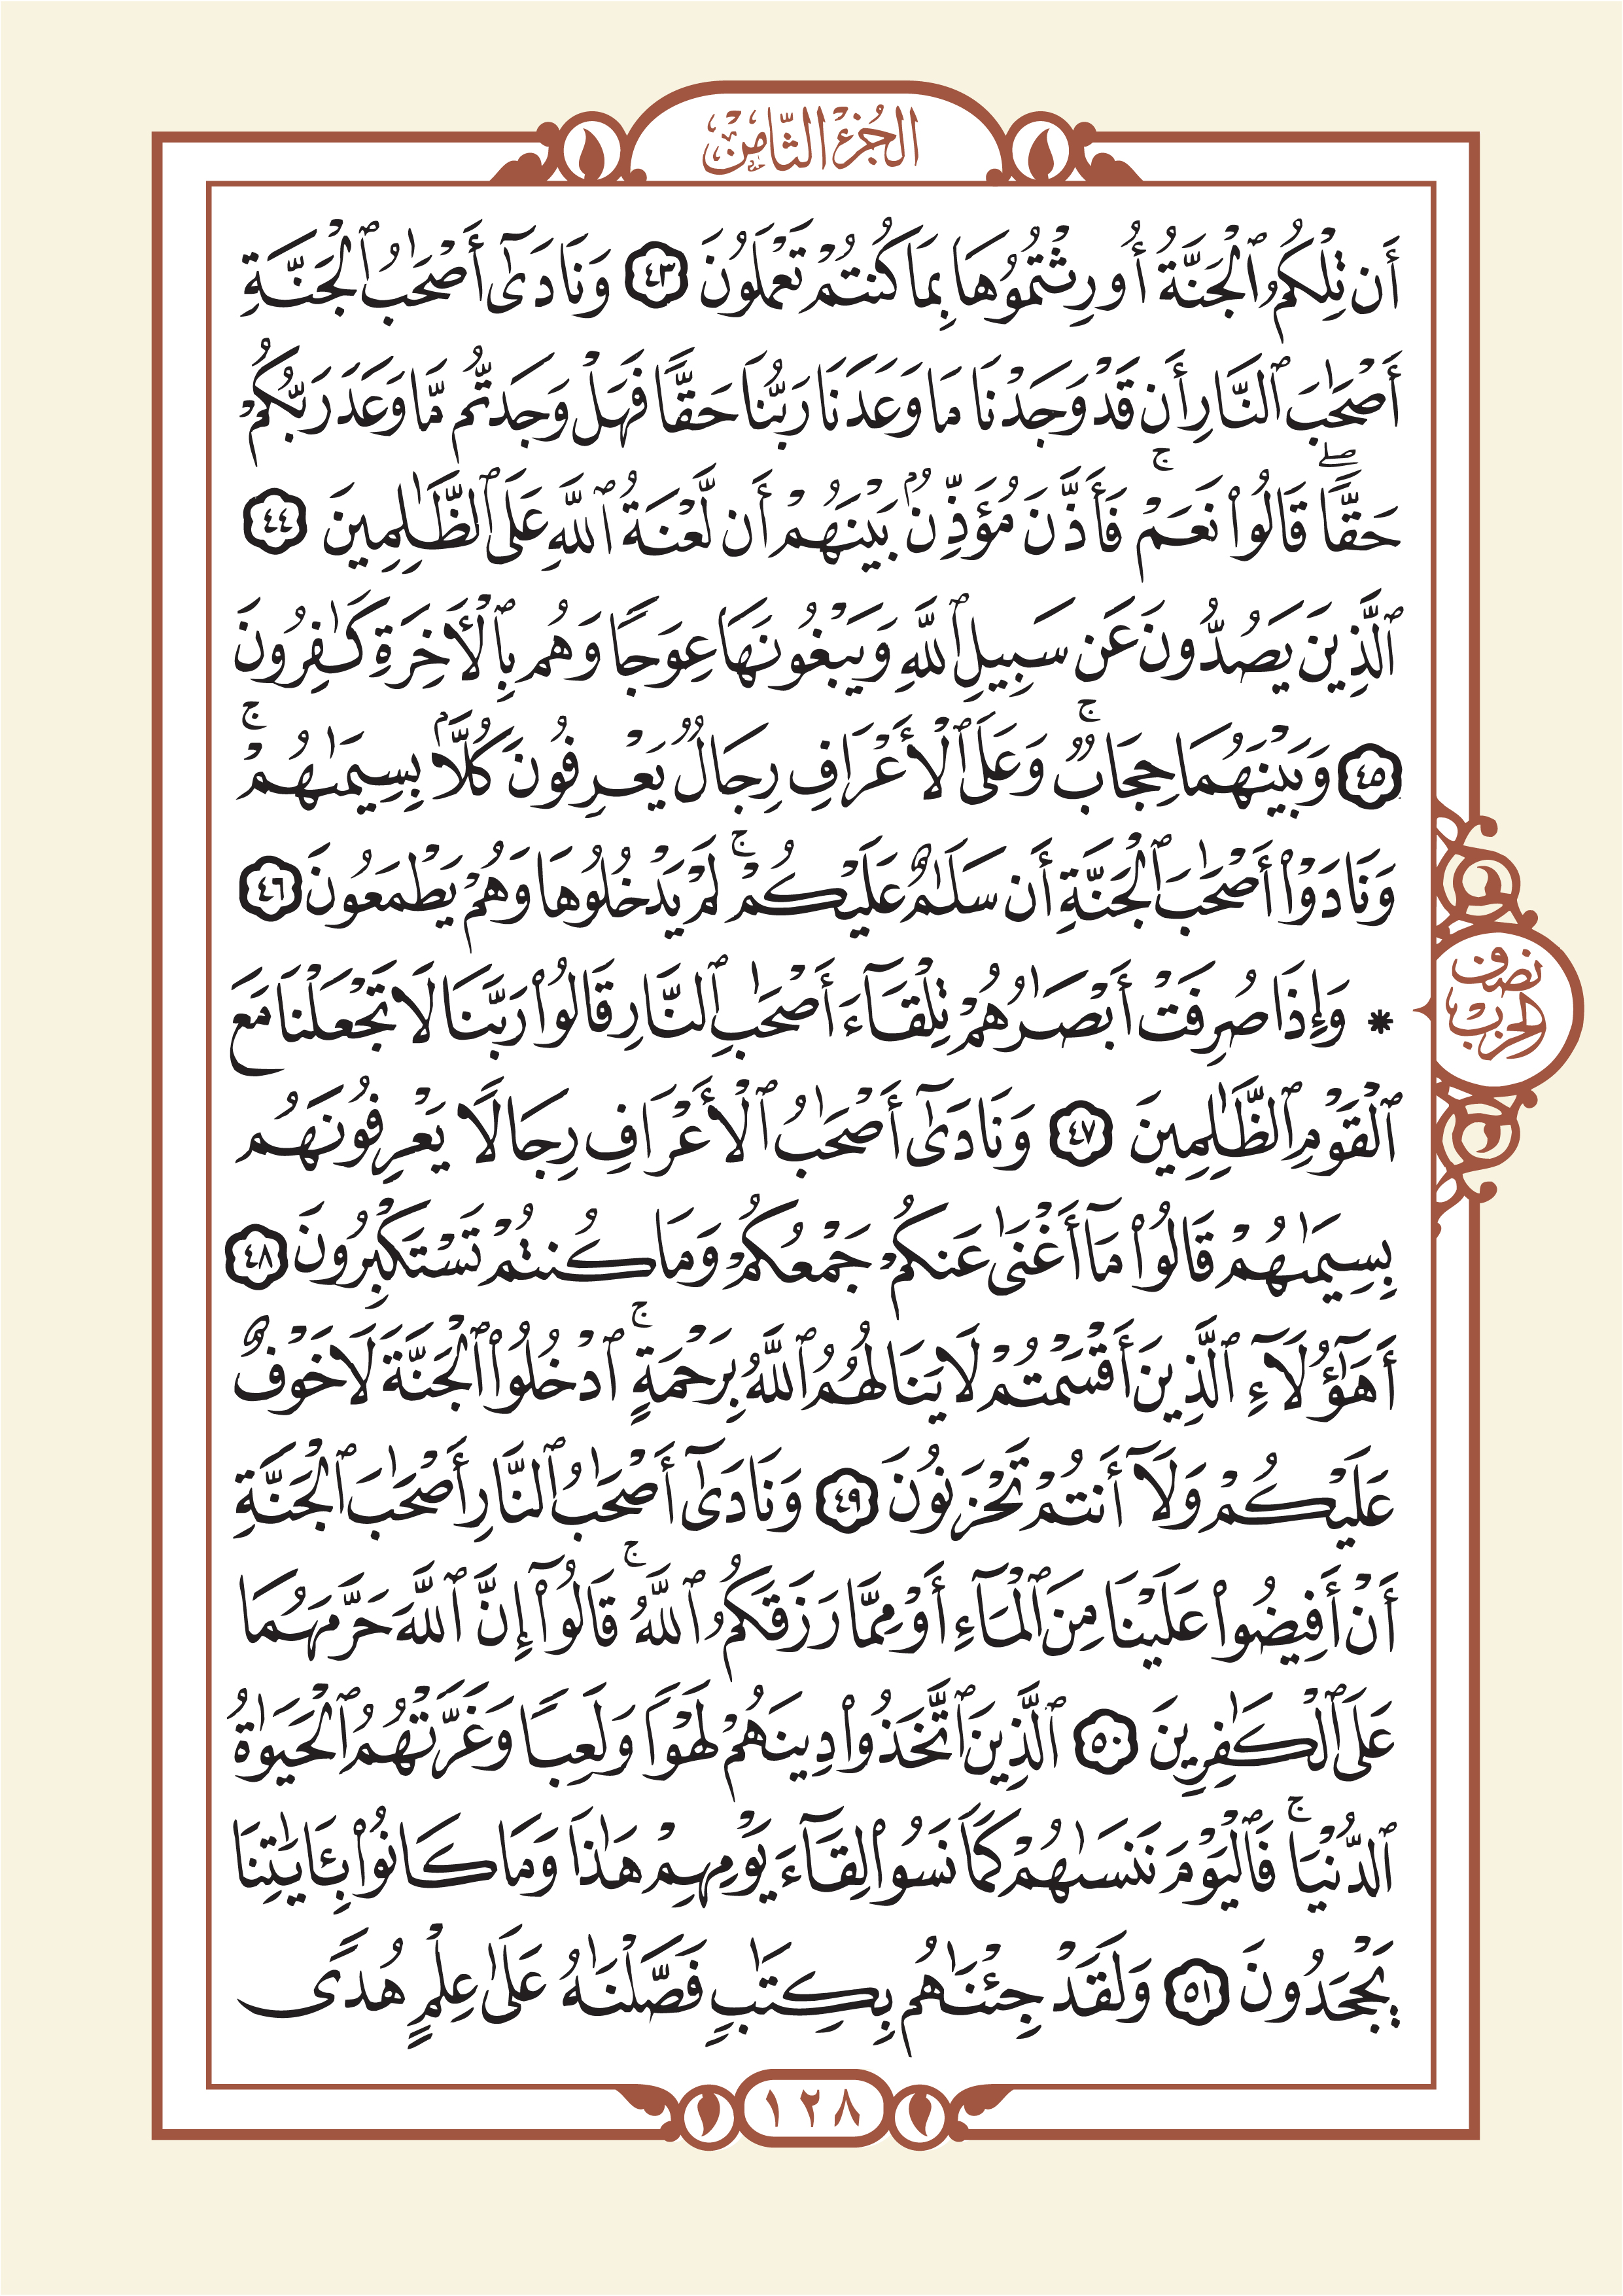 الجُزءُ الثَّامِنُ
أَن تِلْكُمُ ٱلْجَنَّةُ أُورِثْتُمُوهَا بِمَا كُنتُمْ تَعْمَلُونَ ٤٣ وَنَادَىٰٓ أَصْحَٰبُ ٱلْجَنَّةِ
أَصْحَٰبَ ٱلنَّارِ أَن قَدْ وَجَدْنَا مَا وَعَدَنَا رَبُّنَا حَقًّا فَهَلْ وَجَدتُّم مَّا وَعَدَ رَبُّكُمْ
حَقًّاۖ قَالُوا۟ نَعَمْۚ فَأَذَّنَ مُؤَذِّنُۢ بَيْنَهُمْ أَن لَّعْنَةُ ٱللَّهِ عَلَى ٱلظَّٰلِمِينَ ٤٤
ٱلَّذِينَ يَصُدُّونَ عَن سَبِيلِ ٱللَّهِ وَيَبْغُونَهَا عِوَجًا وَهُم بِٱلْأَخِرَةِ كَٰفِرُونَ
٤٥ وَبَيْنَهُمَا حِجَابٌۚ وَعَلَى ٱلْأَعْرَافِ رِجَالٌ يَعْرِفُونَ كُلًّۢا بِسِيمَىٰهُمْۚ
وَنَادَوْا۟ أَصْحَٰبَ ٱلْجَنَّةِ أَن سَلَٰمٌ عَلَيْكُمْۚ لَمْ يَدْخُلُوهَا وَهُمْ يَطْمَعُونَ ٤٦
* وَإِذَا صُرِفَتْ أَبْصَٰرُهُمْ تِلْقَآءَ أَصْحَٰبِ ٱلنَّارِ قَالُوا۟ رَبَّنَا لَا تَجْعَلْنَا مَعَ
نصف الحزب
ٱلْقَوْمِ ٱلظَّٰلِمِينَ ٤٧ وَنَادَىٰٓ أَصْحَٰبُ ٱلْأَعْرَافِ رِجَالًا يَعْرِفُونَهُم
بِسِيمَىٰهُمْ قَالُوا۟ مَآ أَغْنَىٰ عَنكُمْ جَمْعُكُمْ وَمَا كُنتُمْ تَسْتَكْبِرُونَ ٤٨
أَهَٰٓؤُلَآءِ ٱلَّذِينَ أَقْسَمْتُمْ لَا يَنَالُهُمُ ٱللَّهُ بِرَحْمَةٍۚ ٱدْخُلُوا۟ ٱلْجَنَّةَ لَا خَوْفٌ
عَلَيْكُمْ وَلَآ أَنتُمْ تَحْزَنُونَ ٤٩ وَنَادَىٰٓ أَصْحَٰبُ ٱلنَّارِ أَصْحَٰبَ ٱلْجَنَّةِ
أَنْ أَفِيضُوا۟ عَلَيْنَا مِنَ ٱلْمَآءِ أَوْ مِمَّا رَزَقَكُمُ ٱللَّهُۚ قَالُوٓا۟ إِنَّ ٱللَّهَ حَرَّمَهُمَا
عَلَى ٱلْكَٰفِرِينَ ٥٠ ٱلَّذِينَ ٱتَّخَذُوا۟ دِينَهُمْ لَهْوًا وَلَعِبًا وَغَرَّتْهُمُ ٱلْحَيَوٰةُ
ٱلدُّنْيَاۚ فَٱلْيَوْمَ نَنسَىٰهُمْ كَمَا نَسُوا۟ لِقَآءَ يَوْمِهِمْ هَٰذَا وَمَا كَانُوا۟ بِـَٔايَٰتِنَا
يَجْحَدُونَ ٥١ وَلَقَدْ جِئْنَٰهُم بِكِتَٰبٍ فَصَّلْنَٰهُ عَلَىٰ عِلْمٍ هُدًى
١٢٨